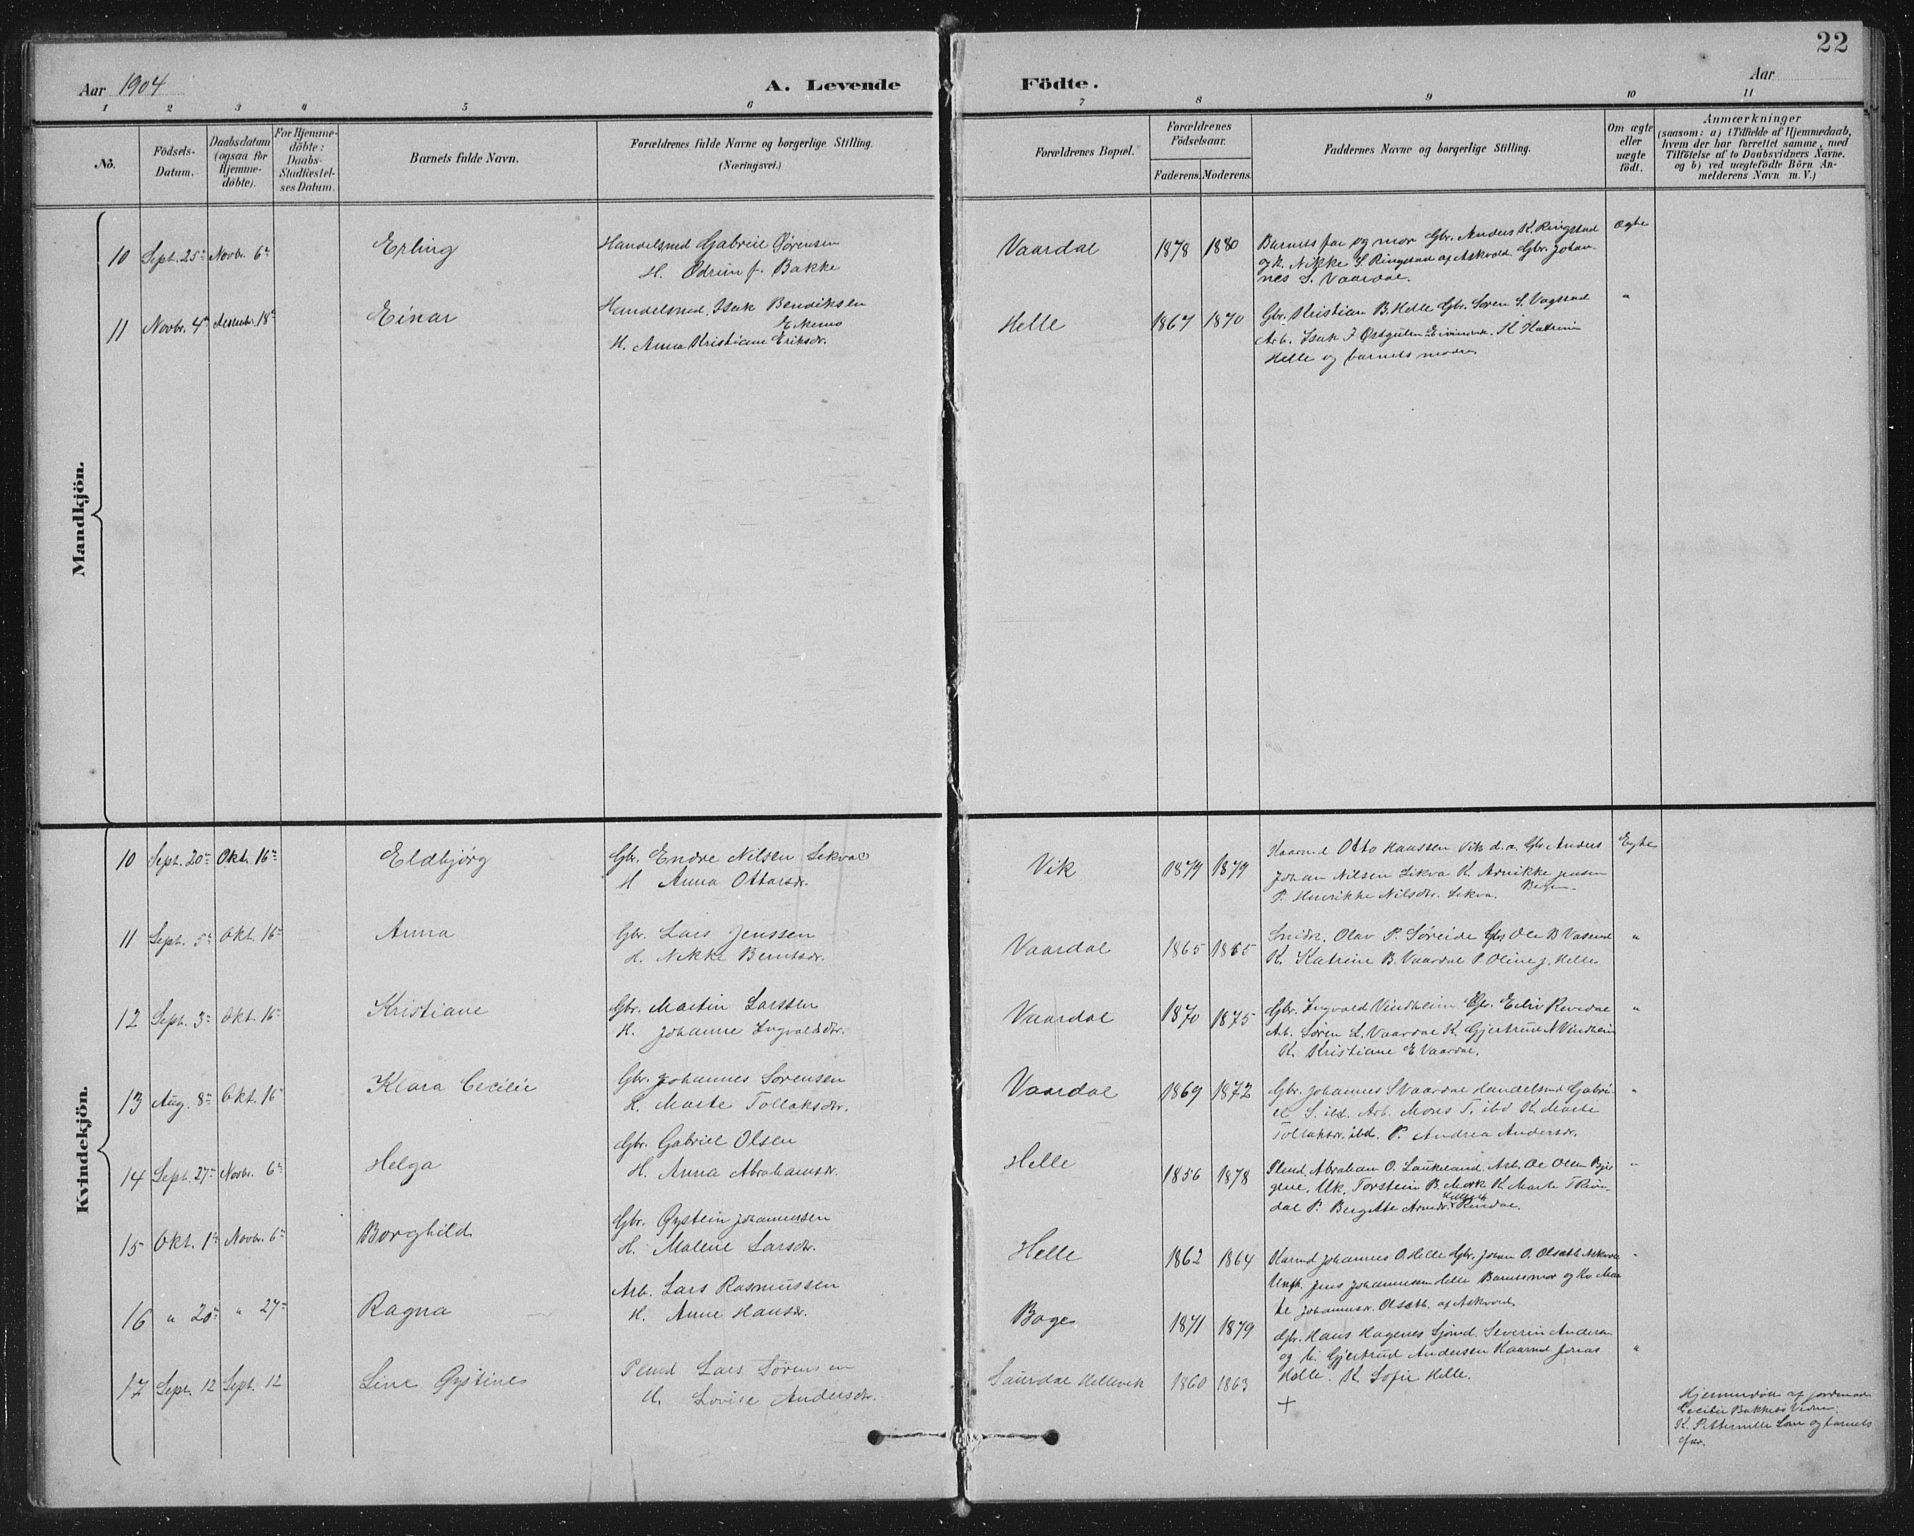 22
Aar 1904
A. Levende
Födte.
Aar
1 2 3 4 5 6 7 8 9 10 11
No.
Födsels-Datum.
Daabsdatum (ogsaa for Hjemmedöbte).
For Hjemmedöbte: Daabs-Stadfæstelses Datum.
Barnets fulde Navn.
Forældrenes fulde Navne og borgerlige Stilling.
(Næringsvei.)
Forældrenes Bopæl.
Forældrenes Födselsaar.
Faderens. Moderens.
Faddernes Navne og borgerlige Stilling.
Om ægte eller uægte födt.
Anmærkninger
(saasom: a) i Tilfælde af Hjemmedaab,
hvem der har forrettet samme, med
Tilföielse af to Daabsvidners Navne,
og b) ved uægtefödte Börn An-
melderens Navn m. V.)
Mandkjön.
10 Sept. 25 Novbr. 6 Erling Handelsmd Gabriel Sørensen
H. Odrun f. Bakke
Vaardal 1878 1880 Barnets far og mor Gbr. Anders K. Ringstad
og k. Nikke S. Ringstad af Askvold. Gbr. Johan-
nes S. Vaardal.
Ægte
11 Novbr. 4 18 Einar Handelsmd. Isak Bendiksen
H. Anna Kristiane Eriksdr.
Helle 1867 1870 Gbr. Kristian B. Helle Gbr. Søren S. Vagstad
Arb. Isak J. Østgulen H. Katrine
Helle og barnets moder
"
Kvindekjön.
10 Sept. 20 Okt. 16 Eldbjørg Gbr. Endre Nilsen Sekva
H. Anna Ottarsdr.
Vik 1879 1879 Otto Hanssen Vik d.a. Gbr Anders
Johan Nilsen Sekva K. Jensen
P. Henrikke Nilsdr. Sekva.
Egte
11 Sept. 5 Okt. 16 Anna Gbr. Lars Jenssen
H. Nikke Berntsdr.
Vaardal 1865 1865 Olav P. Søreide Gbr Ole B
K. Katrine B. Vaardal P. Oline J. Helle
"
12 Sept. 3 Okt. 16 Kristiane Gbr. Martin Larssen
H. Johanne Ingvaldsdr.
Vaardal 1870 1875 Gbr. Ingvald Vindheim Gbr. Eiliv
Arb. Søren L. Vaardal K. Gjertrud A Vindheim
K. Kristiane E Vaardal.
"
13 Aug. 8 Okt. 16 Klara Cecilie Gbr. Johannes Sørensen
H. Marte Tollaksdr.
Vaardal 1869 1872 Gbr. Johannes S Vaardal Handelsmd Gabri-
el S. ibd. Arb. Mons T. ibd K. Marte
Tollaksdr. ibd. P. Andrea Andersdr.
"
14 Sept. 27 Novbr. 6 Helga Gbr. Gabriel Olsen
H. Anna Abrahamsdr.
Helle 1856 1878 Plmd. Abraham O. Laukeland, Arb. Ole Olsen
Uk. Torstein B. Mork K. Marte T
dal P. Bergitte
"
15 Okt. 1 Novbr. 6 Borghild Gbr. Øystein Johannessen
H. Malene Larsdr.
Helle 1862 1864 Kaarmd Johannes O. Helle Gbr. Johan O. Olsæth Askvold
Ungk. Jens Johannessen Helle Barnets mor og Ko Mar-
te Johannesdr. Olsæth. af Askvold.
"
16 " 20 " 27 Ragna Arb. Lars Rasmussen
H. Anne Hansdr.
Boge 1871 1879 Gbr. Hans Hagenes Sjømd. Severin Andersen
og Gjertrud Andersen Kaarmd Jonas
Helle. K. Sofie Helle.
"
17 Sept. 12 Sept. 12 Line Øystine Plmd Lars Sørensen
H. Lovise Andersdr.
Saurdal Hellevik 1860 1863 +
Hjemmedøbt af jordmoder
Cecilie Bakkebø Vidner:
K. Petternille Lone og barnets
far.